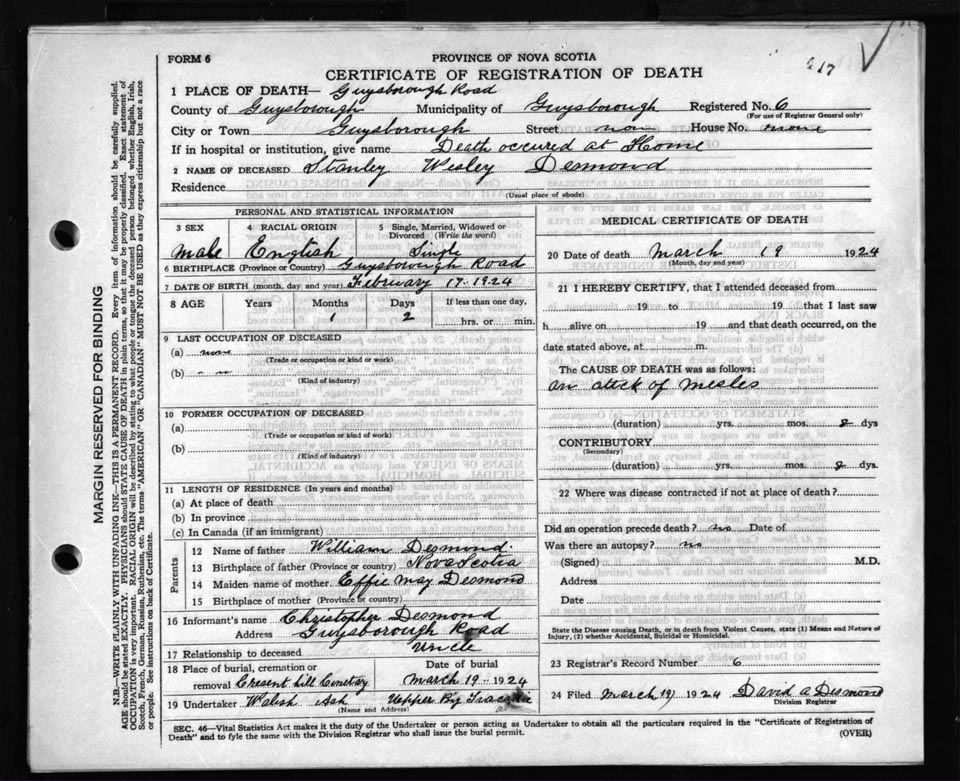 217
FORM 6
PROVINCE OF NOVA SCOTIA
CERTIFICATE OF REGISTRATION OF DEATH
1 PLACE OF DEATH— Guysborough Road
County of Guysborough Municipality of Guysborough Registered No. 6
(For use of Registrar General only)
City or Town Guysborough Street non House No. none
If in hospital or institution, give name Death occured at Haome
2 NAME OF DECEASED Stanley Wesley Desmond
Residence
(Usual place of abode)
PERSONAL AND STATISTICAL INFORMATION
3 SEX 4 RACIAL ORIGIN 5 Single, Married, Widowed or Divorced (Write the word)
male English Single
6 BIRTHPLACE (Province or Country) Guysborough Road
7 DATE OF BIRTH (month, day and year) February 17 1924
8 AGE Years Months Days If less than one day,
1 2 hrs. or min.
9 LAST OCCUPATION OF DECEASED
(a) none
(Trade or occupation or kind or work)
(b) - n
(Kind of industry)
10 FORMER OCCUPATION OF DECEASED
(a)
(Trade or occupation or kind of work)
(b)
(Kind of industry)
11 LENGTH OF RESIDENCE (In years and months)
(a) At place of death
(b) In province
(c) In Canada (if an immigrant)
Parents
12 Name of father William Desmond
13 Birthplace of father (Province or country) Nova Scotia
14 Maiden name of mother Effie May Desmond
15 Birthplace of mother (Province or country)
16 Informant's name Christopher Desmond
Address Guysborough Road
17 Relationship to deceased Uncle
18 Place of burial, cremation or removal Cresent hill Cemetary Date of burial March 19 1924
19 Undertaker Walish Ash Upper By Tracadie
(Name and Address)
MEDICAL CERTIFICATE OF DEATH
20 Date of death March 19 1924
(Month, day and year)
21 I HEREBY CERTIFY, that I attended deceased from
19 to 19 that I last saw
h alive on 19 and that death occurred, on the
date stated above, at m.
The CAUSE OF DEATH was as follows:
an attck of mesles
(duration) yrs. mos. 2 dys
CONTRIBUTORY
(Secondary)
(duration) yrs. mos. 2 dys.
22 Where was disease contracted if not at place of death?
Did an operation precede death? no Date of
Was there an autopsy? no
(Signed) M.D.
Address
Date
State the Disease causing Death, or in death from Violent Causes, state (1) Means and Nature of
Injury, (2) whether Accidental, Suicidal or Homicidal.
23 Registrar's Record Number 6
24 Filed March 19 1924 David A Desmond
Division Registrar
SEC. 46—Vital Statistics Act makes it the duty of the Undertaker or person acting as Undertaker to obtain all the particulars required in the "Certificate of Registration of
Death" and to fyle the same with the Division Registrar who shall issue the burial permit. (OVER)
MARGIN RESERVED FOR BINDING
N.B.—WRITE PLAINLY, WITH UNFADING INK—THIS IS A PERMANENT RECORD. Every item of information should be carefully supplied.
AGE should be stated EXACTLY. PHYSICIANS should STATE CAUSE OF DEATH in plain terms, so that it may be properly classified. Exact statement of
OCCUPATION is very important. RACIAL ORIGIN will be described by stating to what people or tongue the deceased person belonged whether English, Irish,
Scotch, French, German, Russian, Ruthenian, etc. The terms "AMERICAN" or "CANADIAN" MUST NOT BE USED as they express citizenship but not a race
or people. See instructions on back of Certificate.